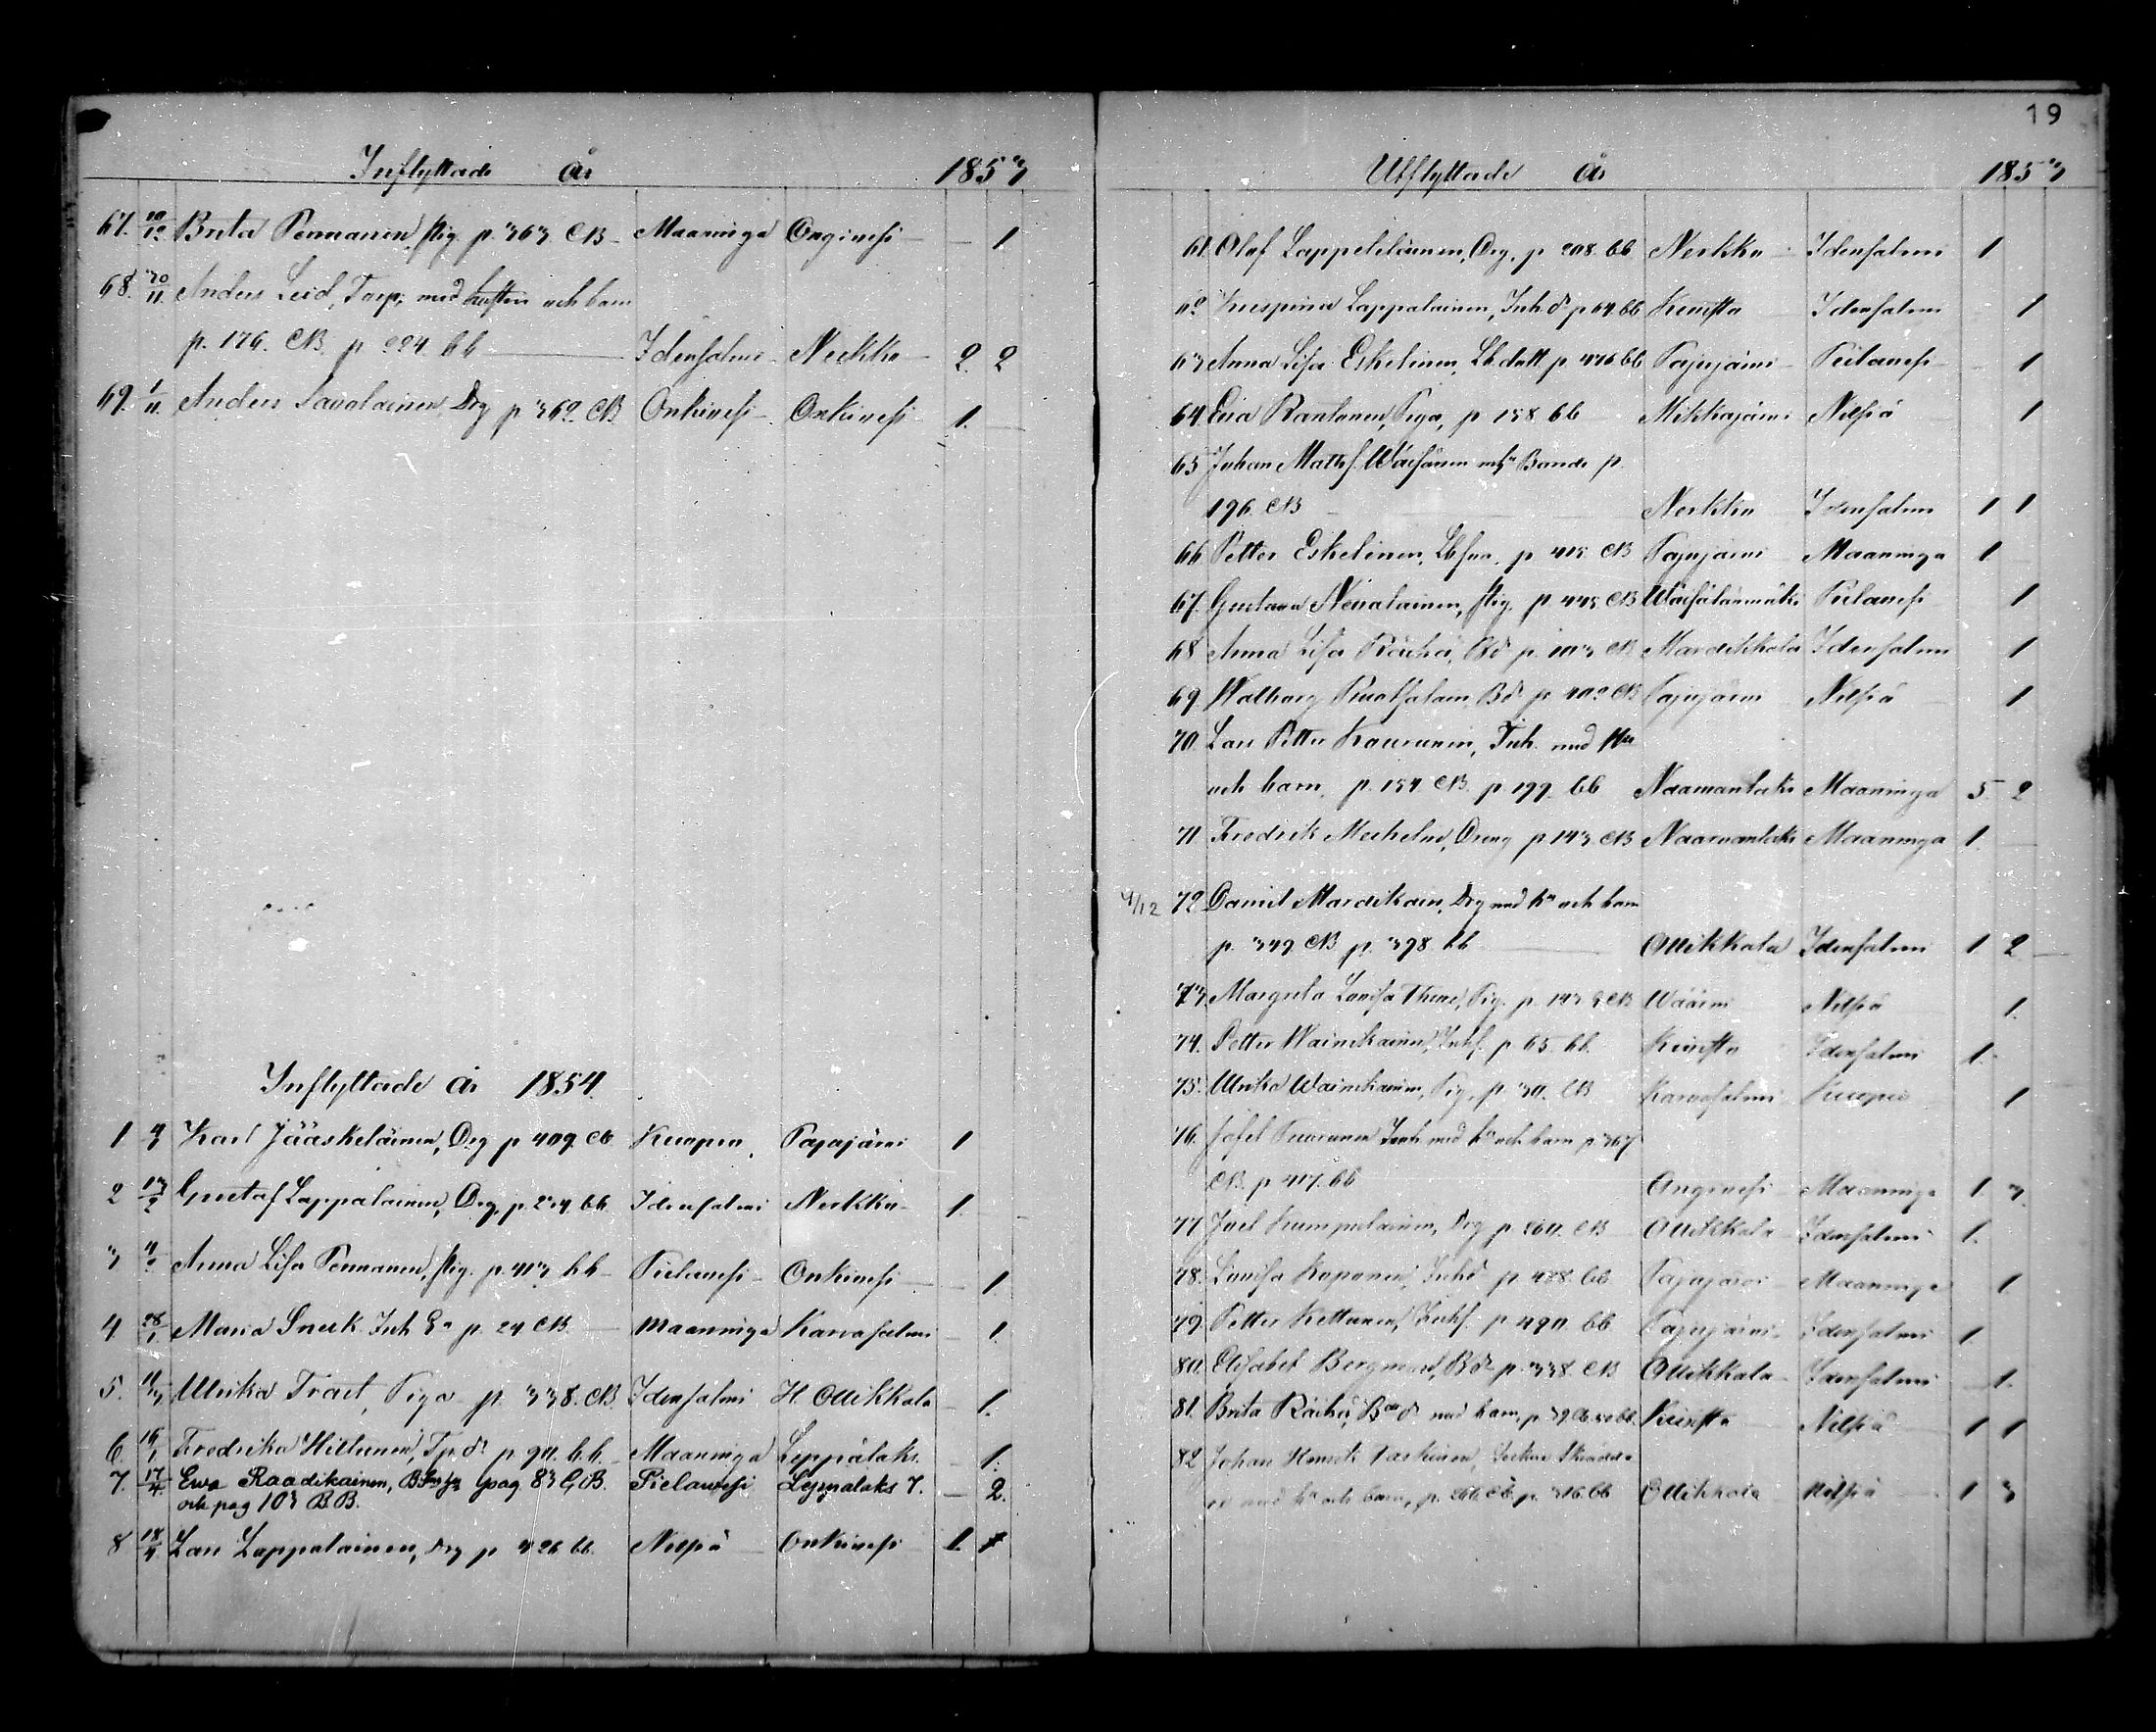 Inflyttade år 1853
67. 10/12 Brita Pennanen, pig. p. 363. CB Maaninga Onginesi — 1
68. 30/11. Anders Leid, Torp. med hustru och barn
p. 176. CB. p 224 bb Idensalmi Nerkko 2. 2
69. 1/11. Anders Savolainen, Drg p 362 CB Onkivesi Onkivesi 1. —
Inflyttade år 1854.
1 Karl Jääskeläinen, Drg p 409. CB. Kuopio Pajujärvi 1
2 13/2 Gustaf Lappalainen, Drg. p. 254 bb. Idensalmi Nerkko 1.
3 Anna Lisa Pennanen, pig. p. 413 bb Pielavesi Onkivesi — 1.
4 28/1 Maria Snerk Inh p. 24 CB. Maaninga Karvasalmi — 1.
5. 11/3 Ulrika Traet, Piga p. 338. CB. Idensalmi H. Ollikkala — 1.
6. 16/1 Fredrika Hiltunen, Tp. dr p 90. b.b. Maaninga Leppälaks — 1.
7. 17/4. Ewa Raadikainen, pag 83 CB. Pielawesi Leppalaks 7. — 2.
och pag 103 BB.
8 18/4 Lars Lappalainen, Drg p 426 bb. Nilsiä Onkivesi 1.
19
Utflyttade år 1853
61. Olof Lappeteläinen, Drg, p 208. bb Nerkko Idensalmi 1
62 Krispina Lappalainen, Inh. dr p 64. bb Kumsta Idensalmi 1
63 Anna Lisa Eskelinen, Lb. dott p. 476 bb Pajujärvi Pielavesi 1
64. Eva Rantanen, Piga, p 158 bb Mikkajärvi Nilsiä 1
65 Johan Matts. Wäisänen Bonde p.
196. CB Nerkko Idensalmi 1 1
66 Petter Eskelinen, Lbson. p 415 CB Pajujärvi Maaninga 1
67. Gustava Nevalainen, pig. p. 445 CB Wäisälänmäki Pielavesi 1
68 Anna Lisa Räihä, Bdr p. 103 CB Mardikkala Idensalmi 1
69. Walborg Ruotsalain, Bdr p 402 CB Pajujärvi Nilsiä 1
70. Lars Petter Kauranen, Inh. med
och barn. p. 154 CB. p 199. bb Naamanlaks Maaninga 5 2
71 Fredrik Mechelin, Dreng p 143. CB Naarvanlaks Maaninga 1. —
4/12 72. Daniel Mardikain, Drg med hu och barn
p. 349 CB p. 398. bb Ollikkala Idensalmi 1. 2
73. Margreta Lovisa Thune, Pig. p. 143 CB Wäärni Nilsiä 1.
74. Petter Wainikainen, Inhs. p 65. bb. Kumsta Idensalmi 1.
75. Ulrika Wainikainen, Pig. p. 30. CB Karvasalmi Kuopio 1
76. Josef Inh med hu och barn p. 367
CB. p 417. bb Onginesi Maaninga 1. 3.
77. Joel Kumpulainen, Drg p 260. CB Ollikkala Idensalmi 1.
78. Lovisa Koponen, Inhd. p 428. bb. Pajujärvi Maaninga 1
79. Petter Kettunen, Inhs. p 490. bb Pajujärvi Idensalmi 1
80. Elisabet Bergman, Bdr p. 338. CB Ollikkala Idensalmi — 1.
81. Brita Räihä, med barn, p 39 Kumsta Nilsiä 1 1
82 Johan Henrik
med hu och barn, p. 266. CB. p. 316. bb Ollikkala Nilsiä 1 3